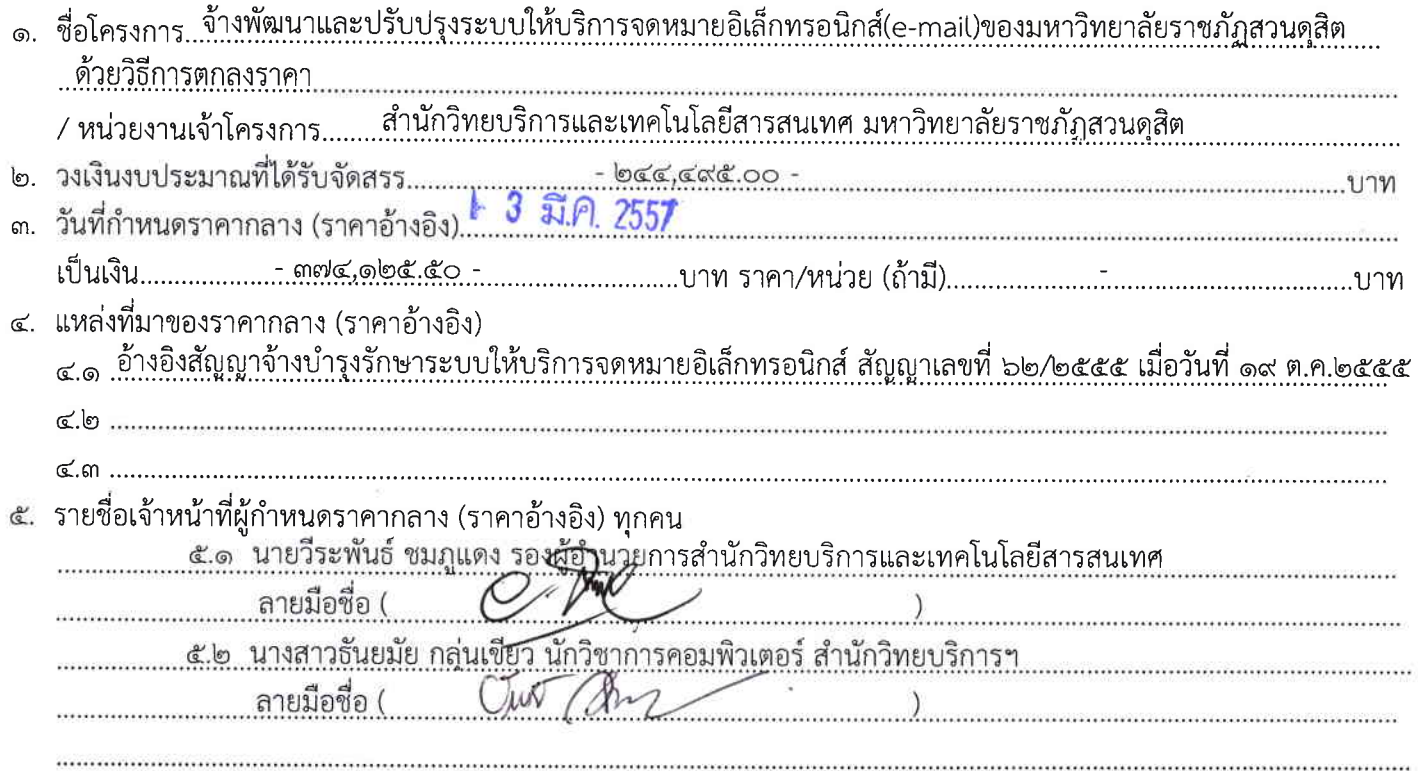 ๑. ชื่อโครงการ...จ้างพัฒนาและปรับปรุงระบบให้บริการจดหมายอิเล็กทรอนิกส์(e-mail)ของมหาวิทยาลัยราชภัฏสวนดุสิต
ด้วยวิธีการตกลงราคา
/ หน่วยงานเจ้าโครงการ........สำนักวิทยบริการและเทคโนโลยีสารสนเทศ มหาวิทยาลัยราชภัฏสวนดุสิต
๒. วงเงินงบประมาณที่ได้รับจัดสรร........- ๒๔๔,๔๙๕.๐๐ -........บาท
๓. วันที่กำหนดราคากลาง (ราคาอ้างอิง)...3 มี.ค. 2557
เป็นเงิน........- ๓๗๔,๑๒๕.๕๐ -........บาท ราคา/หน่วย (ถ้ามี)........-........บาท
๔. แหล่งที่มาของราคากลาง (ราคาอ้างอิง)
๔.๑ อ้างอิงสัญญาจ้างบำรุงรักษาระบบให้บริการจดหมายอิเล็กทรอนิกส์ สัญญาเลขที่ ๖๒/๒๕๕๕ เมื่อวันที่ ๑๙ ต.ค.๒๕๕๕
๔.๒ ........
๔.๓ ........
๕. รายชื่อเจ้าหน้าที่ผู้กำหนดราคากลาง (ราคาอ้างอิง) ทุกคน
๕.๑ นายวีระพันธ์ ชมภูแดง รองผู้อำนวยการสำนักวิทยบริการและเทคโนโลยีสารสนเทศ
ลายมือชื่อ ( )
๕.๒ นางสาวธันยมัย กลุ่นเขียว นักวิชาการคอมพิวเตอร์ สำนักวิทยบริการฯ
ลายมือชื่อ ( )